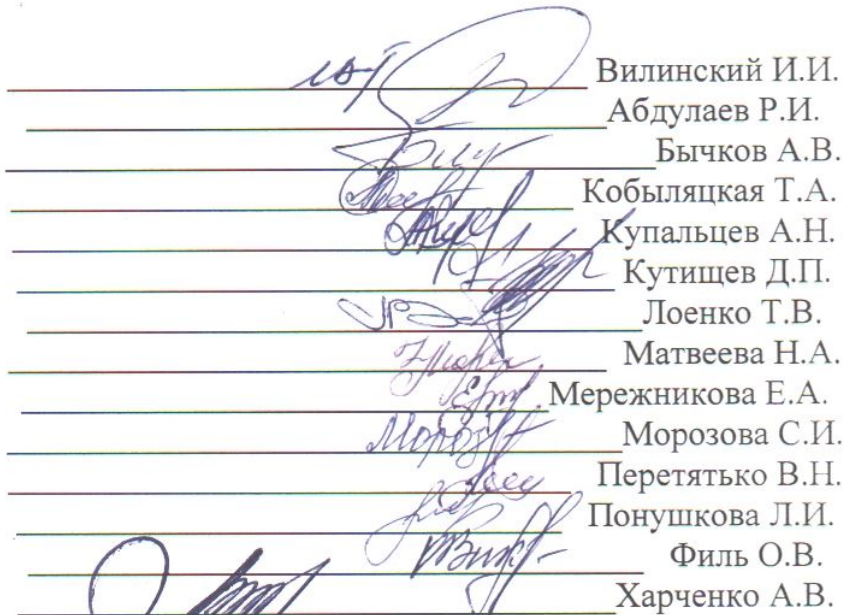 Вилинский И.И.
Абдулаев Р.И.
Бычков А.В.
Кобыляцкая Т.А.
Купальцев А.Н.
Кутищев Д.П.
Лоенко Т.В.
Матвеева Н.А.
Мережникова Е.А.
Морозова С.И.
Перетятько В.Н.
Понушкова Л.И.
Филь О.В.
Харченко А.В.